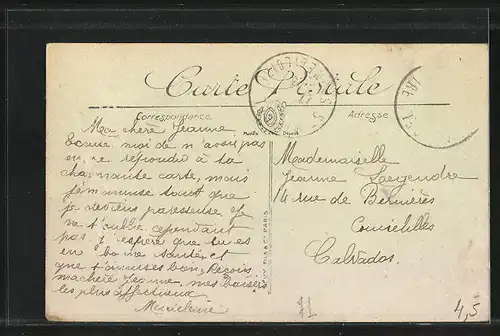 Carte Postale
Correspondance
Adresse
Ma chère Jeanne
Excuse moi de n'avoir pas
pu te répondre à ta
charmante carte, mais
je m'amuse tant que
je deviens paresseuse. Je
ne t'oublie cependant
pas, j'espère que tu es
en bonne santé et
que t'amuses bien. Reçois
ma chère Jeanne, mes baisers
les plus affectueux.
Madeleine
Mademoiselle
Jeanne Legendre
14 rue de Bernières
Calvados.
71
4,5